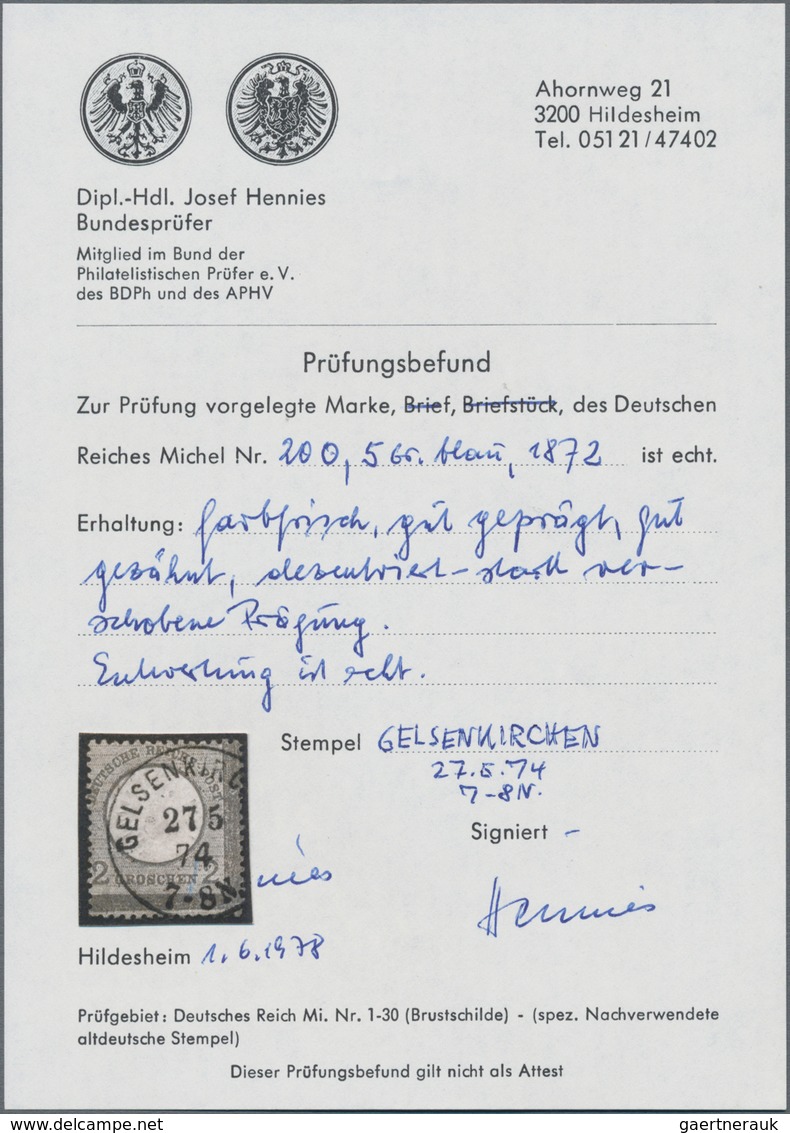 Ahornweg 21
3200 Hildesheim
Tel. 05121/47402
Dipl.-Hdl. Josef Hennies
Bundesprüfer
Mitglied im Bund der
Philatelistischen Prüfer e. V.
des BDPh und des APHV
Prüfungsbefund
Zur Prüfung vorgelegte Marke, Brief, Briefstück, des Deutschen
Reiches Michel Nr. 20 0, 5 Gr. blau, 1872 ist echt.
Erhaltung: farbfrisch, gut geprägt, gut
gezähnt, dezentriert - stark ver-
schobene Prägung.
Entwertung ist echt.
Stempel GELSENKIRCHEN
27.5.74
7-8N.
Signiert -
DEUTSCHE REICHS-POST
GELSENKIRC
27 5
74
7-8N.
2 GROSCHEN 2
nies
Hennies
Hildesheim 1.6.1978
Prüfgebiet: Deutsches Reich Mi. Nr. 1-30 (Brustschilde) - (spez. Nachverwendete
altdeutsche Stempel)
Dieser Prüfungsbefund gilt nicht als Attest
www.delcampe.net
gaertnerauk